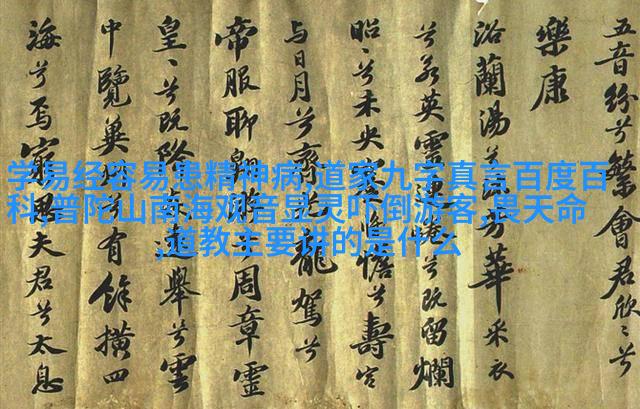 五音纷兮繁會君欣〻兮
樂康
浴蘭湯兮沐芳華采衣
兮若英靈連蜷兮既留爛
昭〻兮未央蹇將憺兮壽宮
与日月兮齊光龍駕兮
帝服聊翱遊兮周章靈
皇〻兮既降遠舉兮雲
中覽冀州兮有餘橫四
海兮焉窮思夫君兮太息
学易经容易患精神病,道家九字真言百度百
科,普陀山南海观音显灵吓倒游客,畏天命
,道教主要讲的是什么